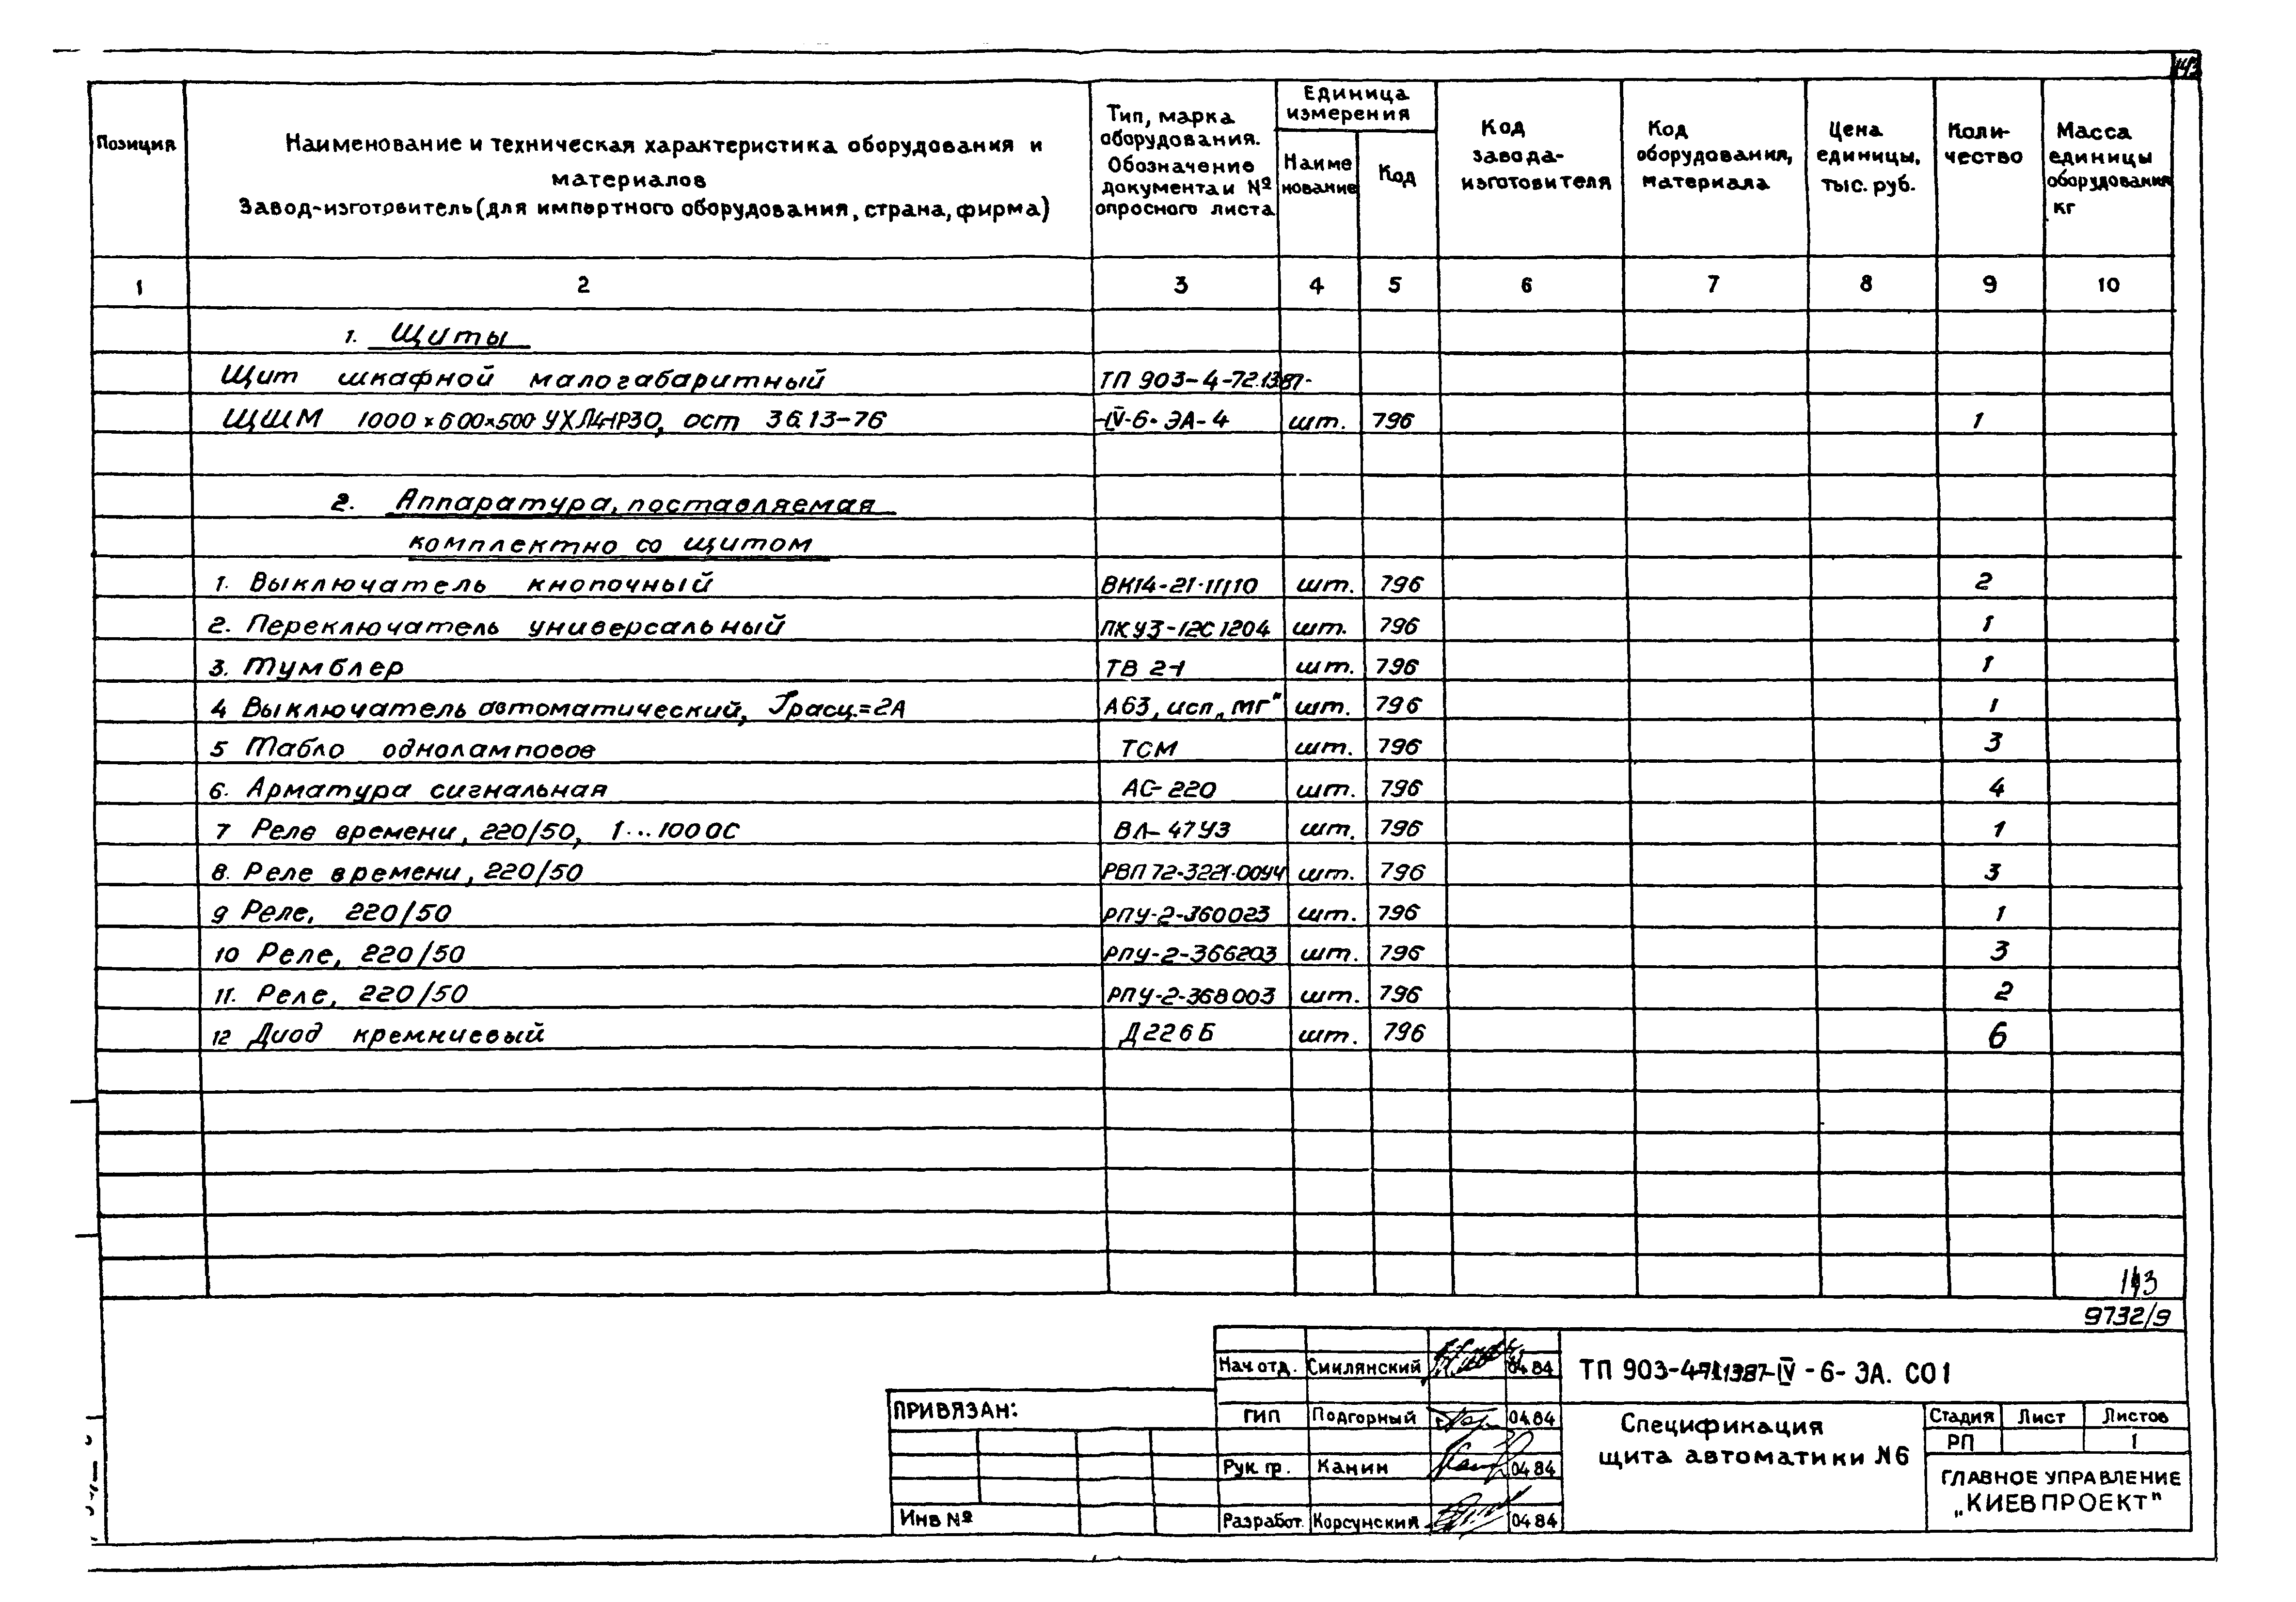 143
Позиция
Наименование и техническая характеристика оборудования и
материалов
Завод-изготовитель (для импортного оборудования, страна, фирма)
Тип, марка
оборудования.
Обозначение
документа и №
опросного листа
Единица
измерения
Наиме
нование
Код
Код
завода-
изготовителя
Код
оборудования,
материала
Цена
единицы,
тыс. руб.
Коли-
чество
Масса
единицы
оборудования
кг
1 2 3 4 5 6 7 8 9 10
1. Щиты
Щит шкафной малогабаритный ТП 903-4-72.13.87-
ЩШМ 1000×600×500 УХЛ4-IP30, ост 36.13-76 -IV-6-ЭА-4 шт. 796 1
2. Аппаратура, поставляемая
комплектно со щитом
1. Выключатель кнопочный ВК14-21-11110 шт. 796 2
2. Переключатель универсальный ПКУ3-12С1204 шт. 796 1
3. Тумблер ТВ 2-1 шт. 796 1
4 Выключатель автоматический, Iрасц.=2А А63, исп „МГ" шт. 796 1
5 Табло одноламповое ТСМ шт. 796 3
6. Арматура сигнальная АС-220 шт. 796 4
7 Реле времени, 220/50, 1...100 0С ВЛ-47У3 шт. 796 1
8. Реле времени, 220/50 РВП72-3221-00У4 шт. 796 3
9 Реле, 220/50 РПУ-2-360023 шт. 796 1
10 Реле, 220/50 РПУ-2-366203 шт. 796 3
11. Реле, 220/50 РПУ-2-368003 шт. 796 2
12 Диод кремниевый Д226Б шт. 796 6
143
9732/9
Нач отд. Смилянский 04 84
ГИП Подгорный 04.84
Рук. гр. Канин 04 84
Разработ. Корсунский 04 84
ПРИВЯЗАН:
Инв №
ТП 903-4-71.1387-IV-6-ЭА. СО1
Спецификация
щита автоматики N6
Стадия Лист Листов
РП 1
ГЛАВНОЕ УПРАВЛЕНИЕ
„КИЕВПРОЕКТ"